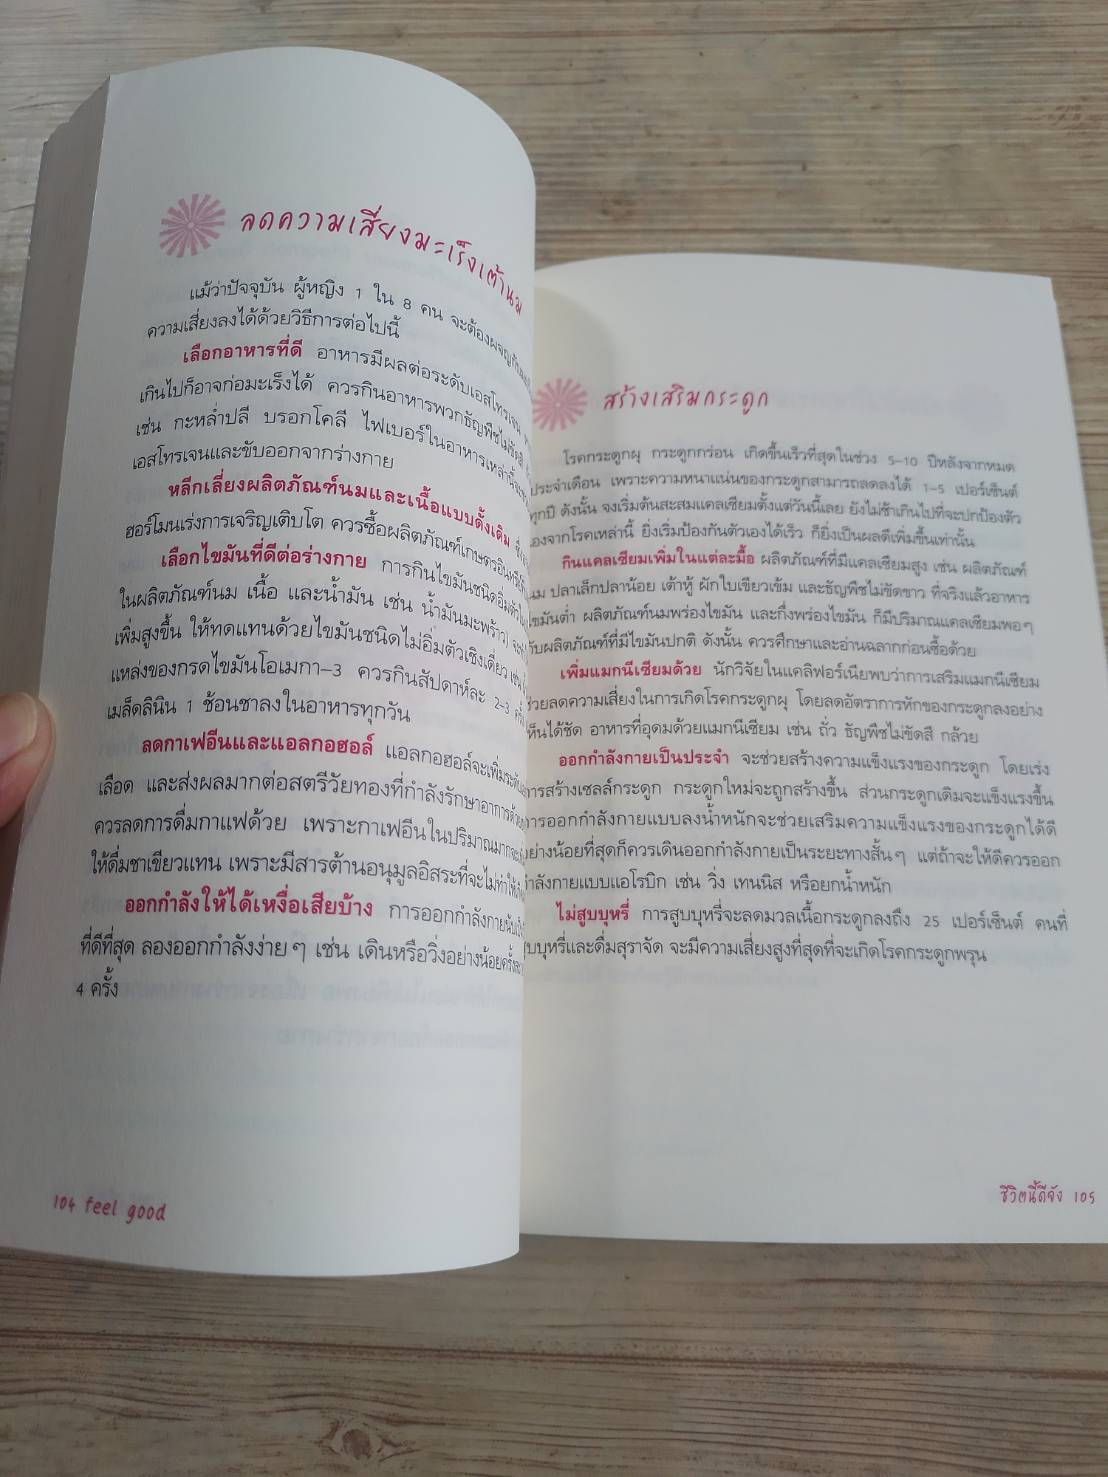 ลดความเสี่ยงมะเร็งเต้านม
แม้ว่าปัจจุบัน ผู้หญิง 1 ใน 8 คน จะต้องผจญกับ
ความเสี่ยงลงได้ด้วยวิธีการต่อไปนี้
เลือกอาหารที่ดี อาหารมีผลต่อระดับเอสโทรเจน
เกินไปก็อาจก่อมะเร็งได้ ควรกินอาหารพวกธัญพืชไม่ขัดสี
เช่น กะหล่ำปลี บรอกโคลี ไฟเบอร์ในอาหารเหล่านี้จะ
เอสโทรเจนและขับออกจากร่างกาย
หลีกเลี่ยงผลิตภัณฑ์นมและเนื้อแบบดั้งเดิม
ฮอร์โมนเร่งการเจริญเติบโต ควรซื้อผลิตภัณฑ์เกษตรอินทรีย์
เลือกไขมันที่ดีต่อร่างกาย การกินไขมันชนิดอิ่มตัว
ในผลิตภัณฑ์นม เนื้อ และน้ำมัน เช่น น้ำมันมะพร้าว)
เพิ่มสูงขึ้น ให้ทดแทนด้วยไขมันชนิดไม่อิ่มตัวเชิงเดี่ยว (เช่น
แหล่งของกรดไขมันโอเมกา-3 ควรกินสัปดาห์ละ 2-3 ครั้ง
เมล็ดลินิน 1 ช้อนชาลงในอาหารทุกวัน
ลดกาเฟอีนและแอลกอฮอล์ แอลกอฮอล์จะเพิ่มระดับ
เลือด และส่งผลมากต่อสตรีวัยทองที่กำลังรักษาอาการด้วย
ควรลดการดื่มกาแฟด้วย เพราะกาเฟอีนในปริมาณมากจะ
ให้ดื่มชาเขียวแทน เพราะมีสารต้านอนุมูลอิสระที่จะไม่ทำให้
ออกกำลังให้ได้เหงื่อเสียบ้าง การออกกำลังกายนับเป็น
ที่ดีที่สุด ลองออกกำลังง่ายๆ เช่น เดินหรือวิ่งอย่างน้อยครั้งละ
4 ครั้ง
104 feel good
สร้างเสริมกระดูก
โรคกระดูกผุ กระดูกกร่อน เกิดขึ้นเร็วที่สุดในช่วง 5-10 ปีหลังจากหมด
ประจำเดือน เพราะความหนาแน่นของกระดูกสามารถลดลงได้ 1-5 เปอร์เซ็นต์
ทุกปี ดังนั้น จงเริ่มต้นสะสมแคลเซียมตั้งแต่วันนี้เลย ยังไม่ช้าเกินไปที่จะปกป้องตัว
เองจากโรคเหล่านี้ ยิ่งเริ่มป้องกันตัวเองได้เร็ว ก็ยิ่งเป็นผลดีเพิ่มขึ้นเท่านั้น
กินแคลเซียมเพิ่มในแต่ละมื้อ ผลิตภัณฑ์ที่มีแคลเซียมสูง เช่น ผลิตภัณฑ์
นม ปลาเล็กปลาน้อย เต้าหู้ ผักใบเขียวเข้ม และธัญพืชไม่ขัดขาว ที่จริงแล้วอาหาร
ไขมันต่ำ ผลิตภัณฑ์นมพร่องไขมัน และกึ่งพร่องไขมัน ก็มีปริมาณแคลเซียมพอๆ
กับผลิตภัณฑ์ที่มีไขมันปกติ ดังนั้น ควรศึกษาและอ่านฉลากก่อนซื้อด้วย
เพิ่มแมกนีเซียมด้วย นักวิจัยในแคลิฟอร์เนียพบว่าการเสริมแมกนีเซียม
ช่วยลดความเสี่ยงในการเกิดโรคกระดูกผุ โดยลดอัตราการหักของกระดูกลงอย่าง
เห็นได้ชัด อาหารที่อุดมด้วยแมกนีเซียม เช่น ถั่ว ธัญพืชไม่ขัดสี กล้วย
ออกกำลังกายเป็นประจำ จะช่วยสร้างความแข็งแรงของกระดูก โดยเร่ง
การสร้างเซลล์กระดูก กระดูกใหม่จะถูกสร้างขึ้น ส่วนกระดูกเดิมจะแข็งแรงขึ้น
การออกกำลังกายแบบลงน้ำหนักจะช่วยเสริมความแข็งแรงของกระดูกได้ดี
อย่างน้อยที่สุดก็ควรเดินออกกำลังกายเป็นระยะทางสั้นๆ แต่ถ้าจะให้ดีควรออก
กำลังกายแบบแอโรบิก เช่น วิ่ง เทนนิส หรือยกน้ำหนัก
ไม่สูบบุหรี่ การสูบบุหรี่จะลดมวลเนื้อกระดูกลงถึง 25 เปอร์เซ็นต์ คนที่
สูบบุหรี่และดื่มสุราจัด จะมีความเสี่ยงสูงที่สุดที่จะเกิดโรคกระดูกพรุน
ชีวิตนี้ดีจัง 105